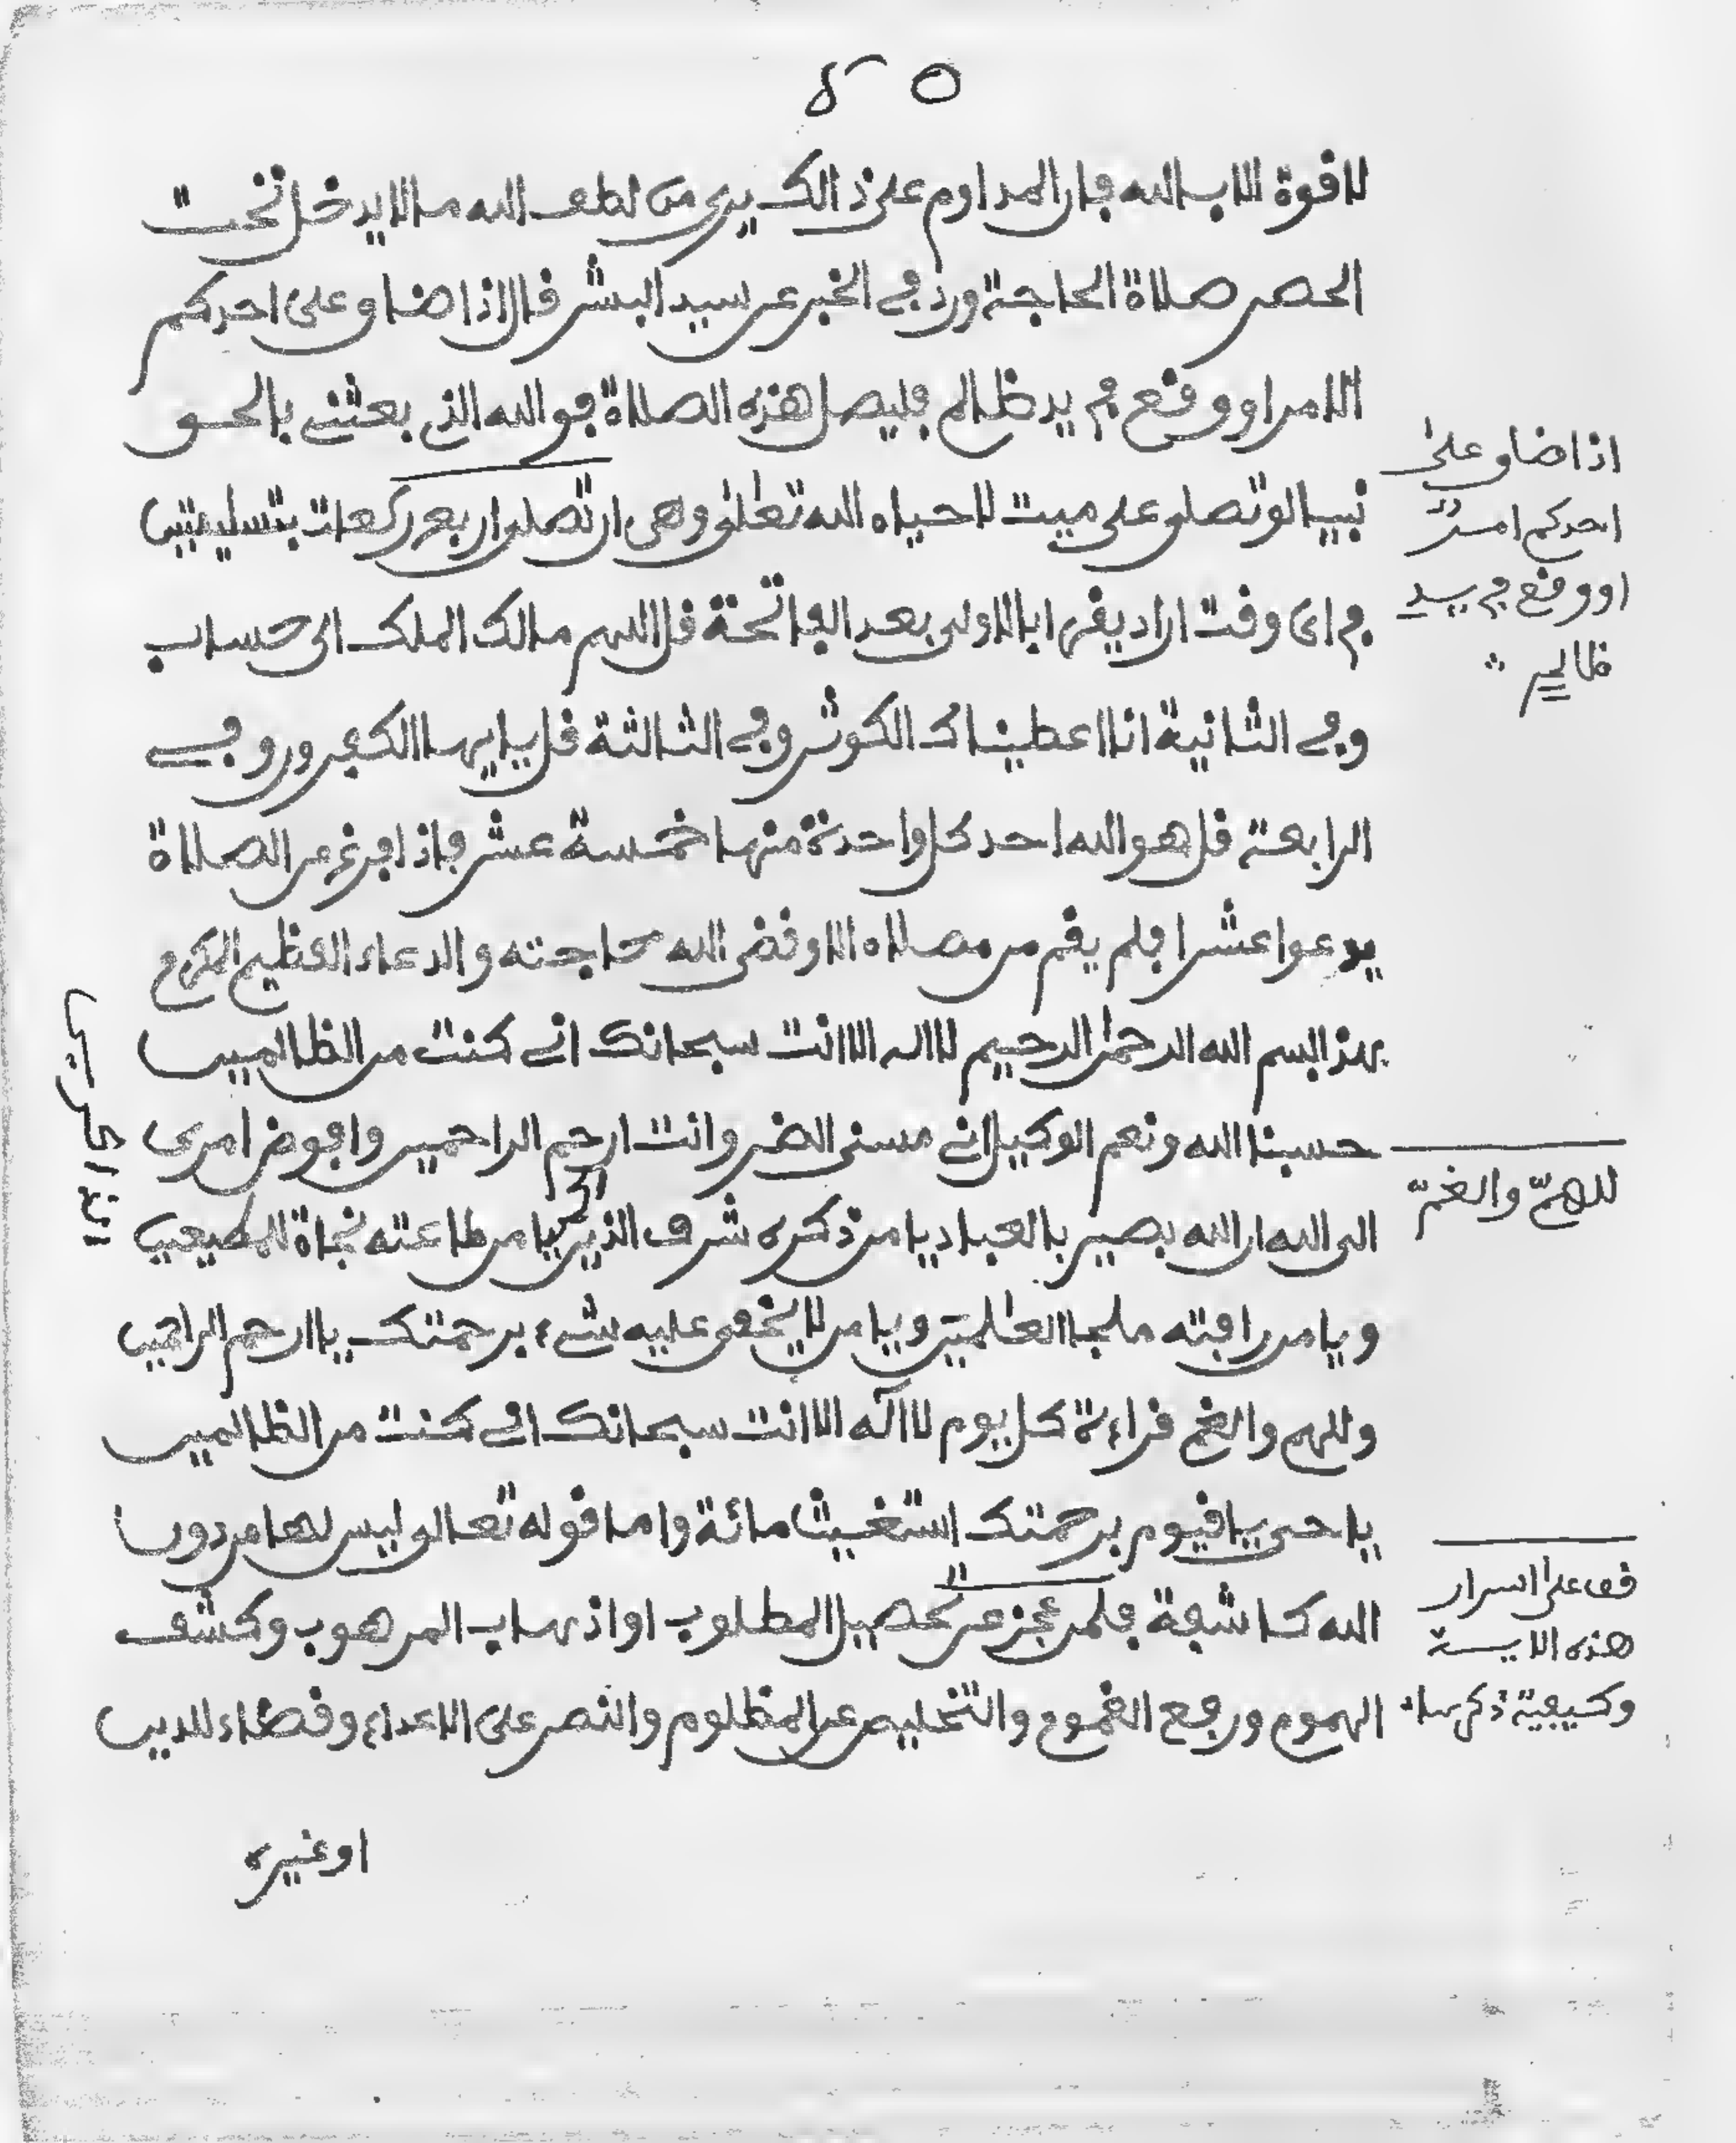 لا قوة الا بالله فان المداوم على ذالك يرى من لطف الله ما لا يدخل تحت
الحصر صلاة الحاجة ورد في الخبر عن سيد البشر قال اذا ضاق على احدكم
الامر او وقع في يد ظالم فليصل هذه الصلاة فوالله الذي بعثني بالحق
نبيا لو تصلى على ميت لاحياه الله تعلى وهي ان تصلى اربع ركعات بتسليمتين
في اي وقت اراد يقرا بالاولى بعد الفاتحة قل اللهم مالك الملك الى حساب
وفي الثانية انا اعطيناك الكوثر وفي الثالثة قل يايها الكفرون وفي
الرابعة قل هو الله احد كل واحدة منها خمسة عشر فاذا فرغ من الصلاة
يدعوا عشرا فلم يقم من مصلاه الا وقضى الله حاجته والدعاء العظيم المكرم
بهذا بسم الله الرحمن الرحيم لا اله الا انت سبحانك اني كنت من الظالمين
حسبنا الله ونعم الوكيل اني مسني الضر وانت ارحم الراحمين وافوض امرى
الى الله ان الله بصير بالعباد يا من ذكره شرف الذاكرين يا من طاعته نجاة للمطيعين
ويا من رافته ملجا العلمين ويا من لا يخفى عليه شيء برحمتك يا ارحم الراحمين
وللهم والغم قراءة كل يوم لا اله الا انت سبحانك اني كنت من الظالمين
يا حي يا قيوم برحمتك استغيث مائة واما قوله تعالى ليس لها من دون
الله كاشفة فلمن عجز عن تحصيل المطلوب او اذهاب المرهوب وكشف
الهموم ورفع الغموم والتخليص عن المظلوم والنصر على الاعداء وقضاء للدين
او غيره
اذا ضاق على
احدكم امر
او وقع في يد
ظالم
للهم والغم
قف على اسرار
هذه الاية
وكيفية ذكرها
الذاكرين